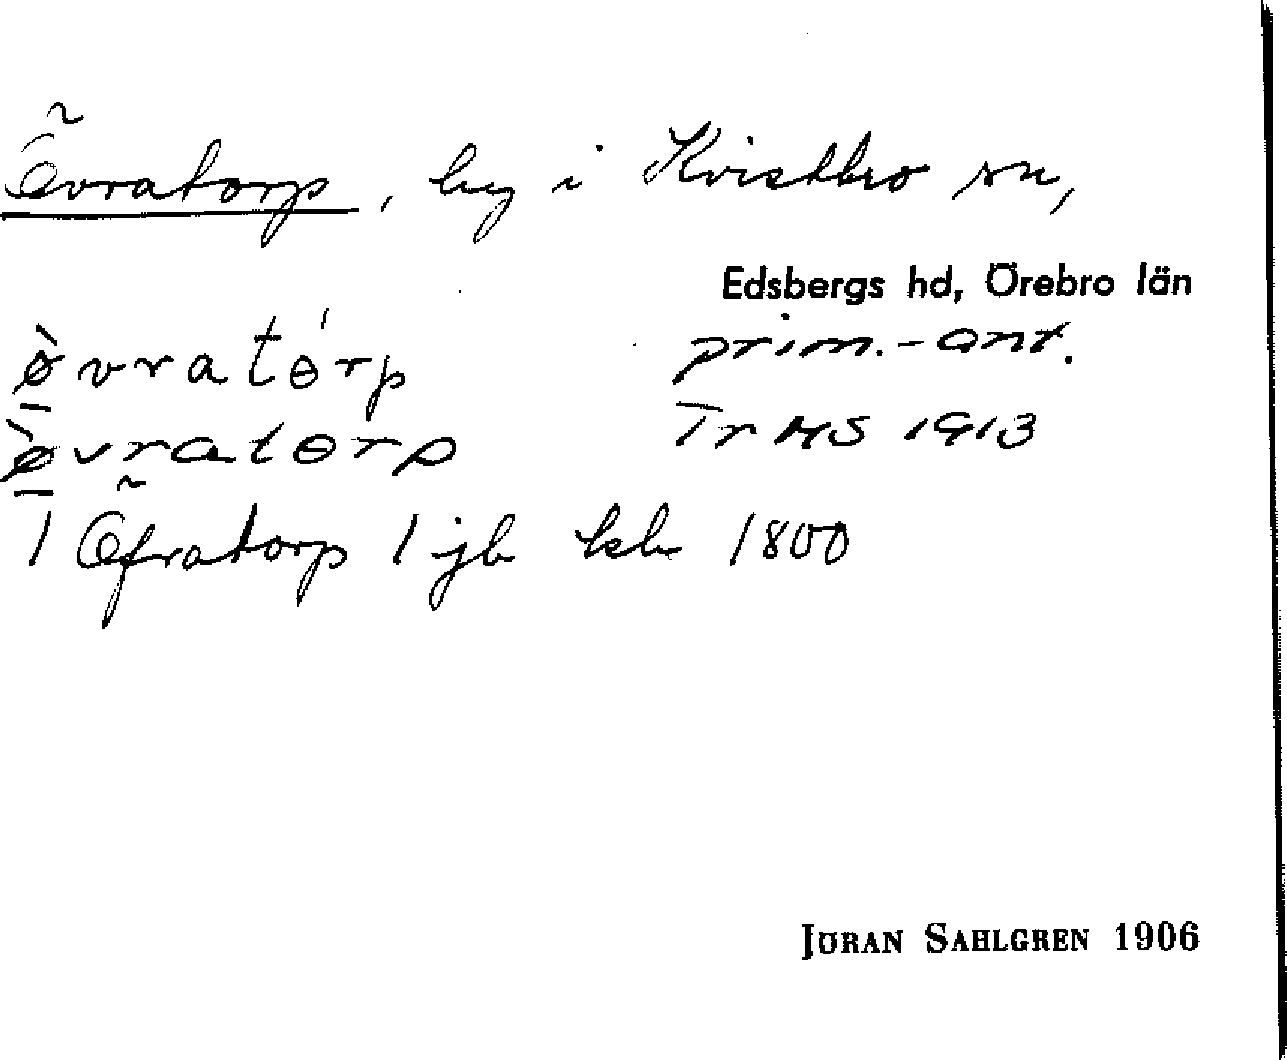 Övratorp, by i Kvistbro sn,
Edsbergs hd, Örebro län
ø̀vratɵ́rp prim.-ant.
ø̀vratɵrp Tr MS 1913
1 Öfratorp 1 jb kbr 1800
JÖRAN SAHLGREN 1906